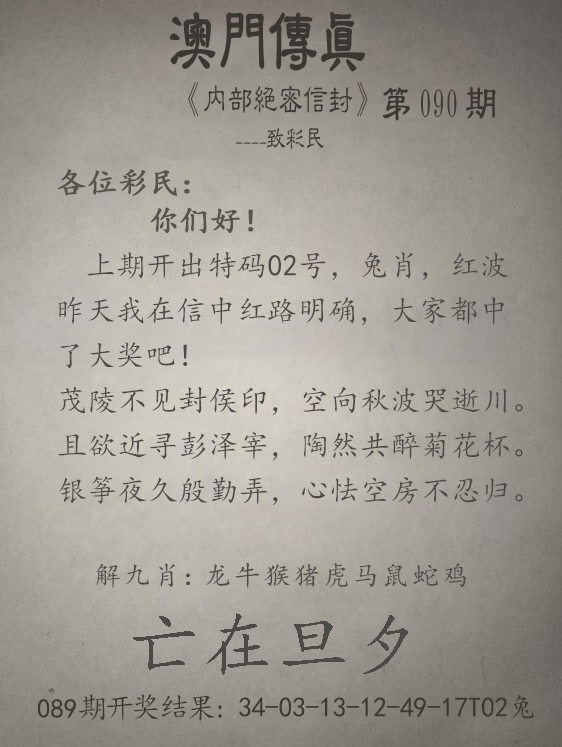 澳門傳眞
《内部絕密信封》第090期
----致彩民
各位彩民：
你们好！
上期开出特码02号，兔肖，红波
昨天我在信中红路明确，大家都中
了大奖吧！
茂陵不见封侯印，空向秋波哭逝川。
且欲近寻彭泽宰，陶然共醉菊花杯。
银筝夜久殷勤弄，心怯空房不忍归。
解九肖：龙牛猴猪虎马鼠蛇鸡
亡在旦夕
089期开奖结果：34-03-13-12-49-17T02兔